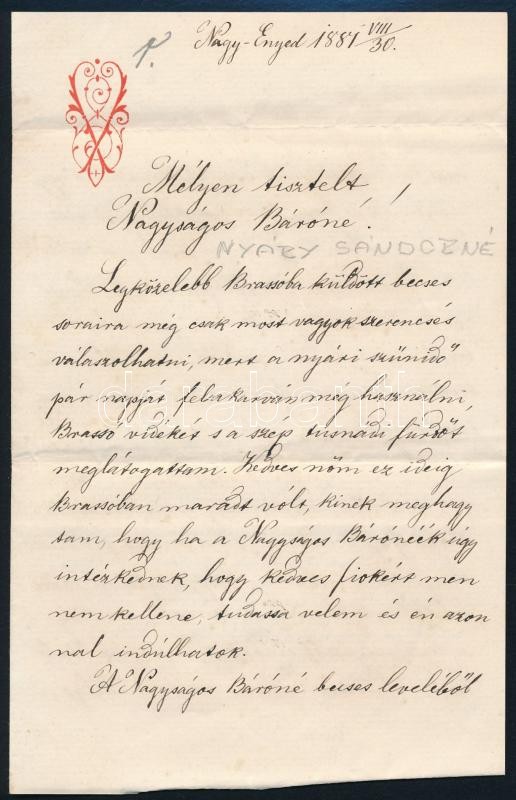 Nagy-Enyed 1887 VIII/30.
Mélyen tisztelt
Nagyságos Báróné!
NYÁRY SÁNDORNÉ
Legközelebb Brassóba küldött becses
soraira még csak most vagyok szerencsés
válaszolhatni, mert a nyári szünidő
pár napját fel akarván meg használni,
Brassó vidékét s a szép tusnádi fürdőt
meglátogattam. Kedves nőm ez ideig
Brassóban maradt vólt, kinek meghagy
tam, hogy ha a Nagyságos Bárónéék úgy
intézkednek, hogy kedves fiokért men
nem kellene, tudassa velem és én azon
nal indúlhatok.
A Nagyságos Báróné becses leveléből
darabanth